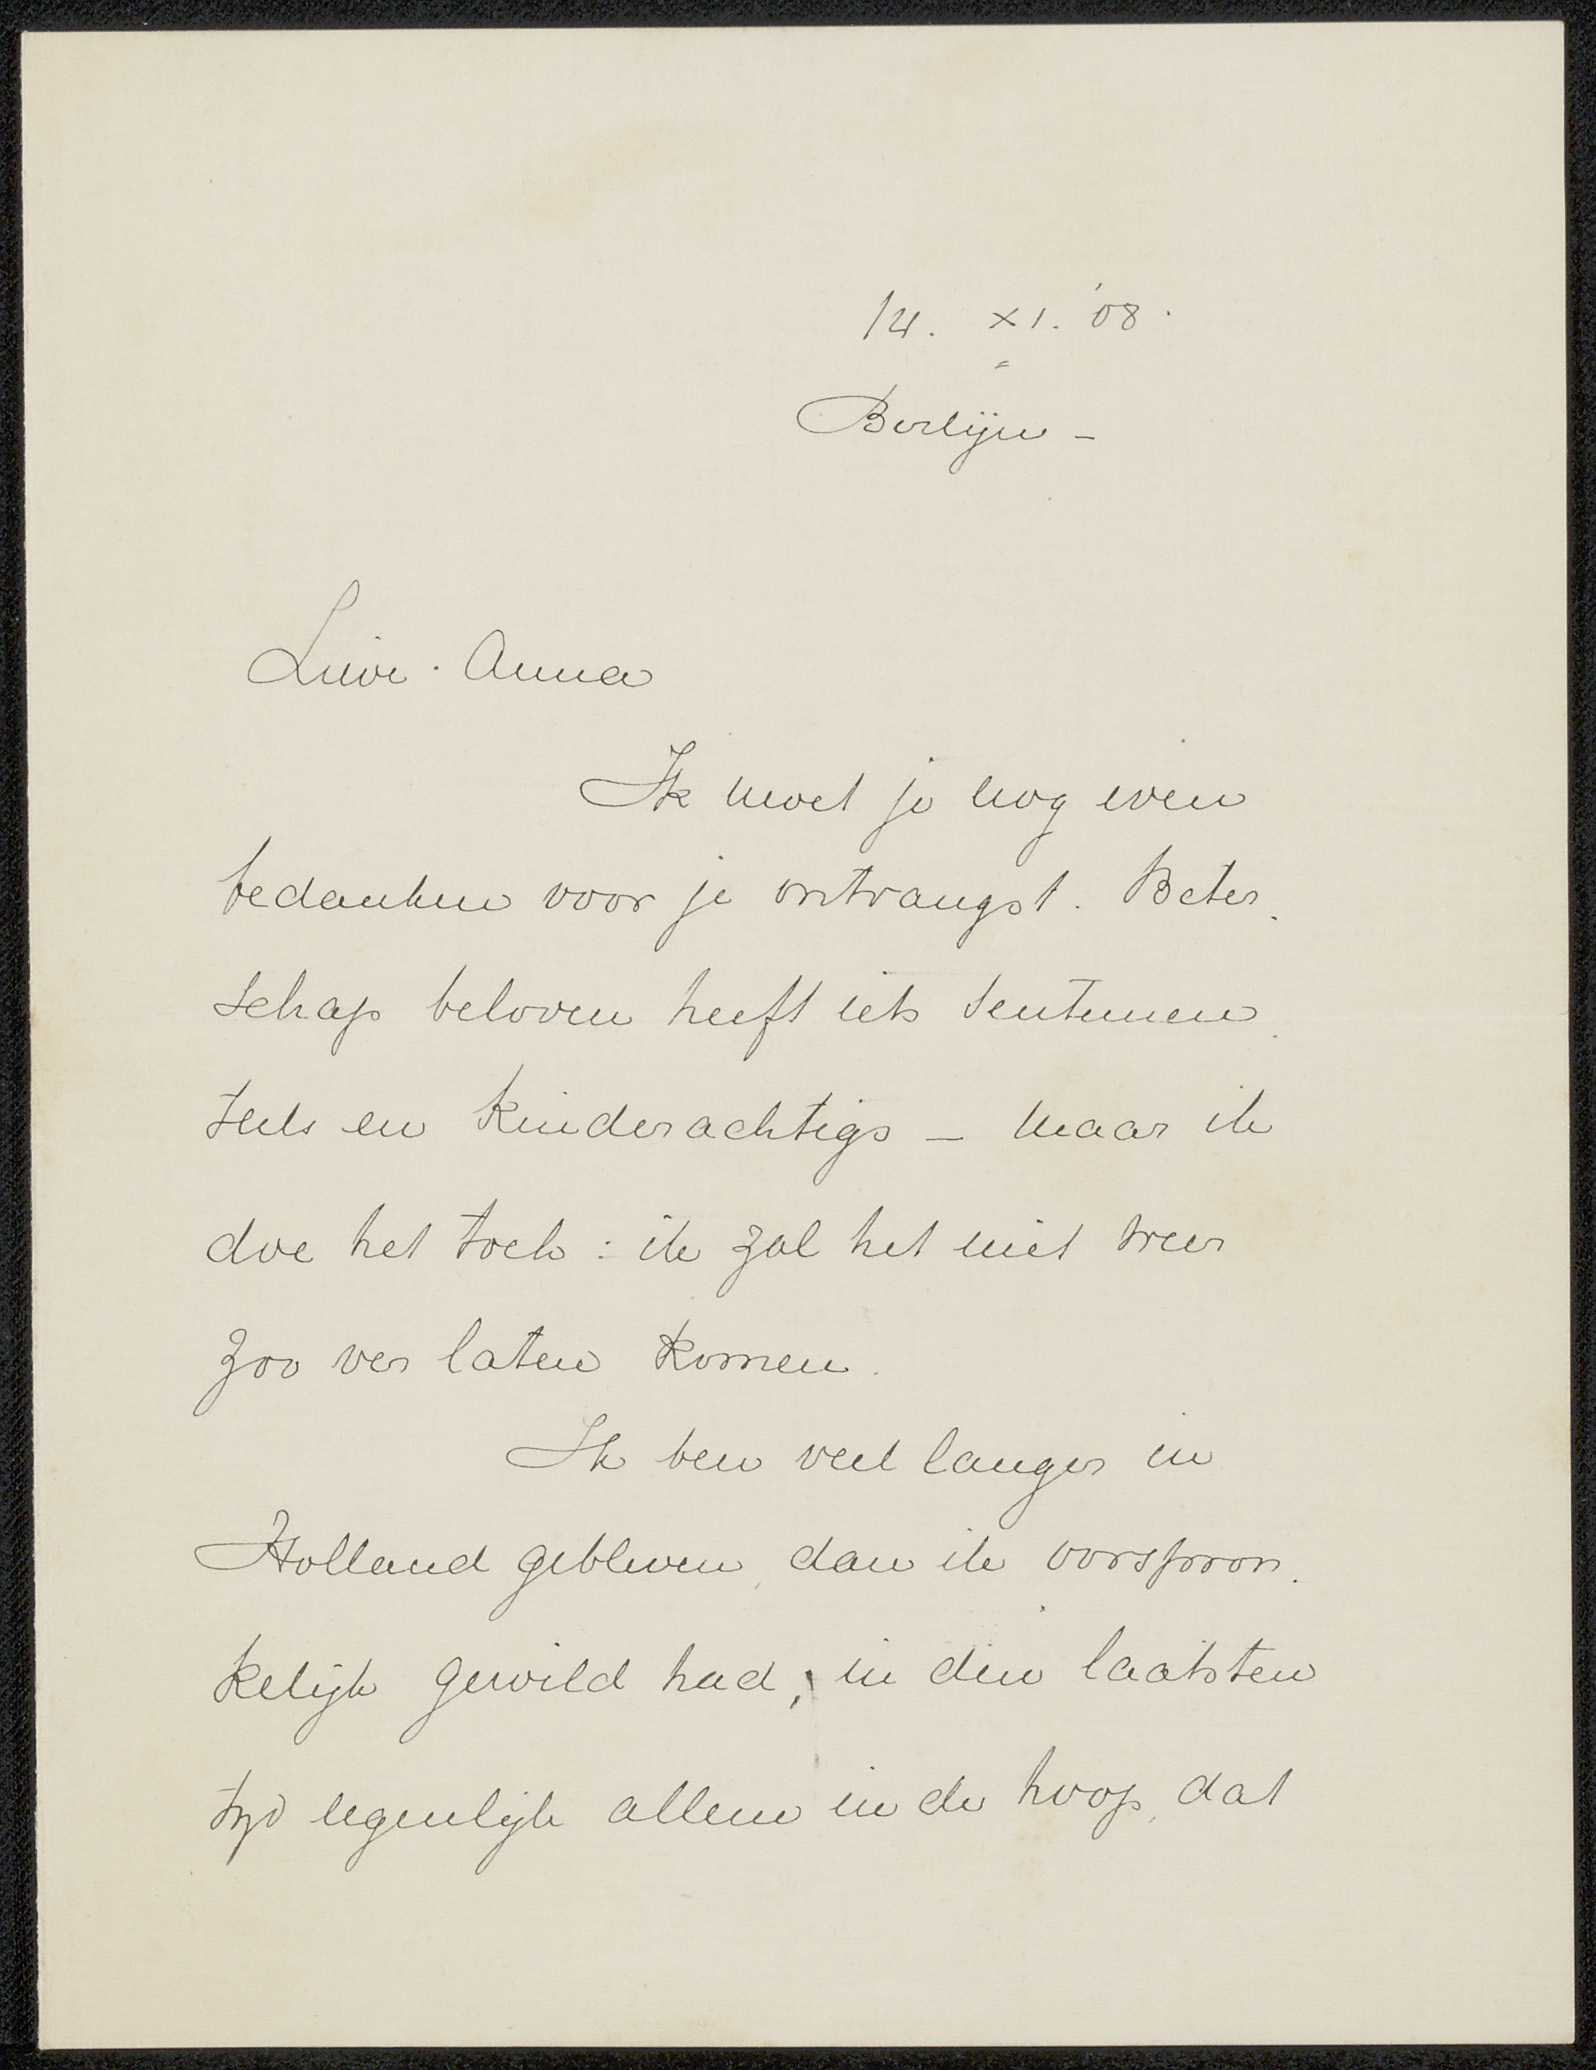 14. XI. '08.
Berlijn -
Lieve Anna
Ik moet je nog even
bedanken voor je ontvangst. Beter-
schap beloven heeft iets sentimen-
teels en kinderachtigs - maar ik
doe het toch: ik zal het niet weer
zoo ver laten komen.
Ik ben veel langer in
Holland gebleven, dan ik oorspron-
kelijk gewild had, in den laatsten
tijd eigenlijk alleen in de hoop, dat